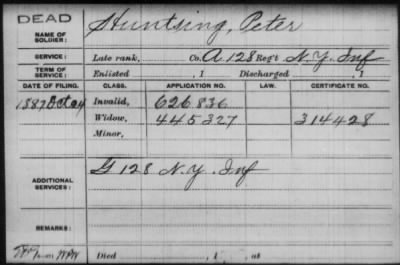 DEAD
NAME OF SOLDIER: Huntsing, Peter
SERVICE: Late rank, Co. A. 128 Reg't N.Y. Inf
TERM OF SERVICE: Enlisted , 1 Discharged , 1
DATE OF FILING. CLASS. APPLICATION NO. LAW. CERTIFICATE NO.
1887 Oct 24 Invalid, 626836
Widow, 445327 314428
Minor,
ADDITIONAL SERVICES: G 128 N.Y. Inf
REMARKS:
Died , 1 , at